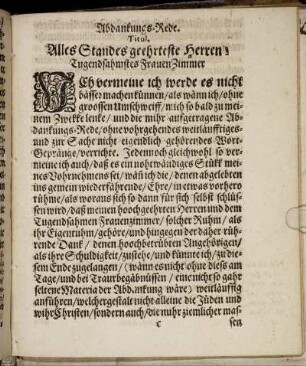 Abdankungs-Rede.
Titul.
Alles Standes geehrteste Herren;
Tugendsahmstes FrauenZimmer
JCh vermeine ich werde es nicht
bässer machen künnen/ als wann ich/ ohne
groossen Umschweiff/ mich so bald zu mei-
nem Zwekke lenke/ und die mihr aufgetragene Ab-
dankungs-Rede/ ohne vohrgehendes weitläufftiges
und zur Sache nicht eigendlich gehörendes Wort-
Gepränge/ verrichte. Jedennoch gleichwohl so ver-
meine ich auch/ daß es ein nohtwändiges Stükk mei-
nes Vohrnehmens sei/ wän ich die/ denen abgelebten
ins gemein wiederfährende/ Ehre/ in etwas vorhero
rühme/ als woraus sich so dann für sich selbst schlüs-
sen wird/ daß meinen hoochgeehrten Herren und dem
Tugendsahmen Frauenzimmer/ solcher Ruhm/ als
ihr Eigentuhm/ gehöre/ und hingegen der daher rüh-
rende Dank/ denen hoochbetrübten Angehörigen/
als ihr Schuldigkeit/ zustehe/ und künnte ich/ zu die-
sem Ende zugelangen/ (wänn es nicht ohne dieß am
Tage/ und bei Traurbegäbnüssen/ eine nicht so gahr
seltene Materia der Abdankung wäre) weitläuffig
anführen/ welcher gestalt nicht alleine die Jüden und
wihr Christen/ sondern auch/ die nuhr ziemlicher mas-
c sen